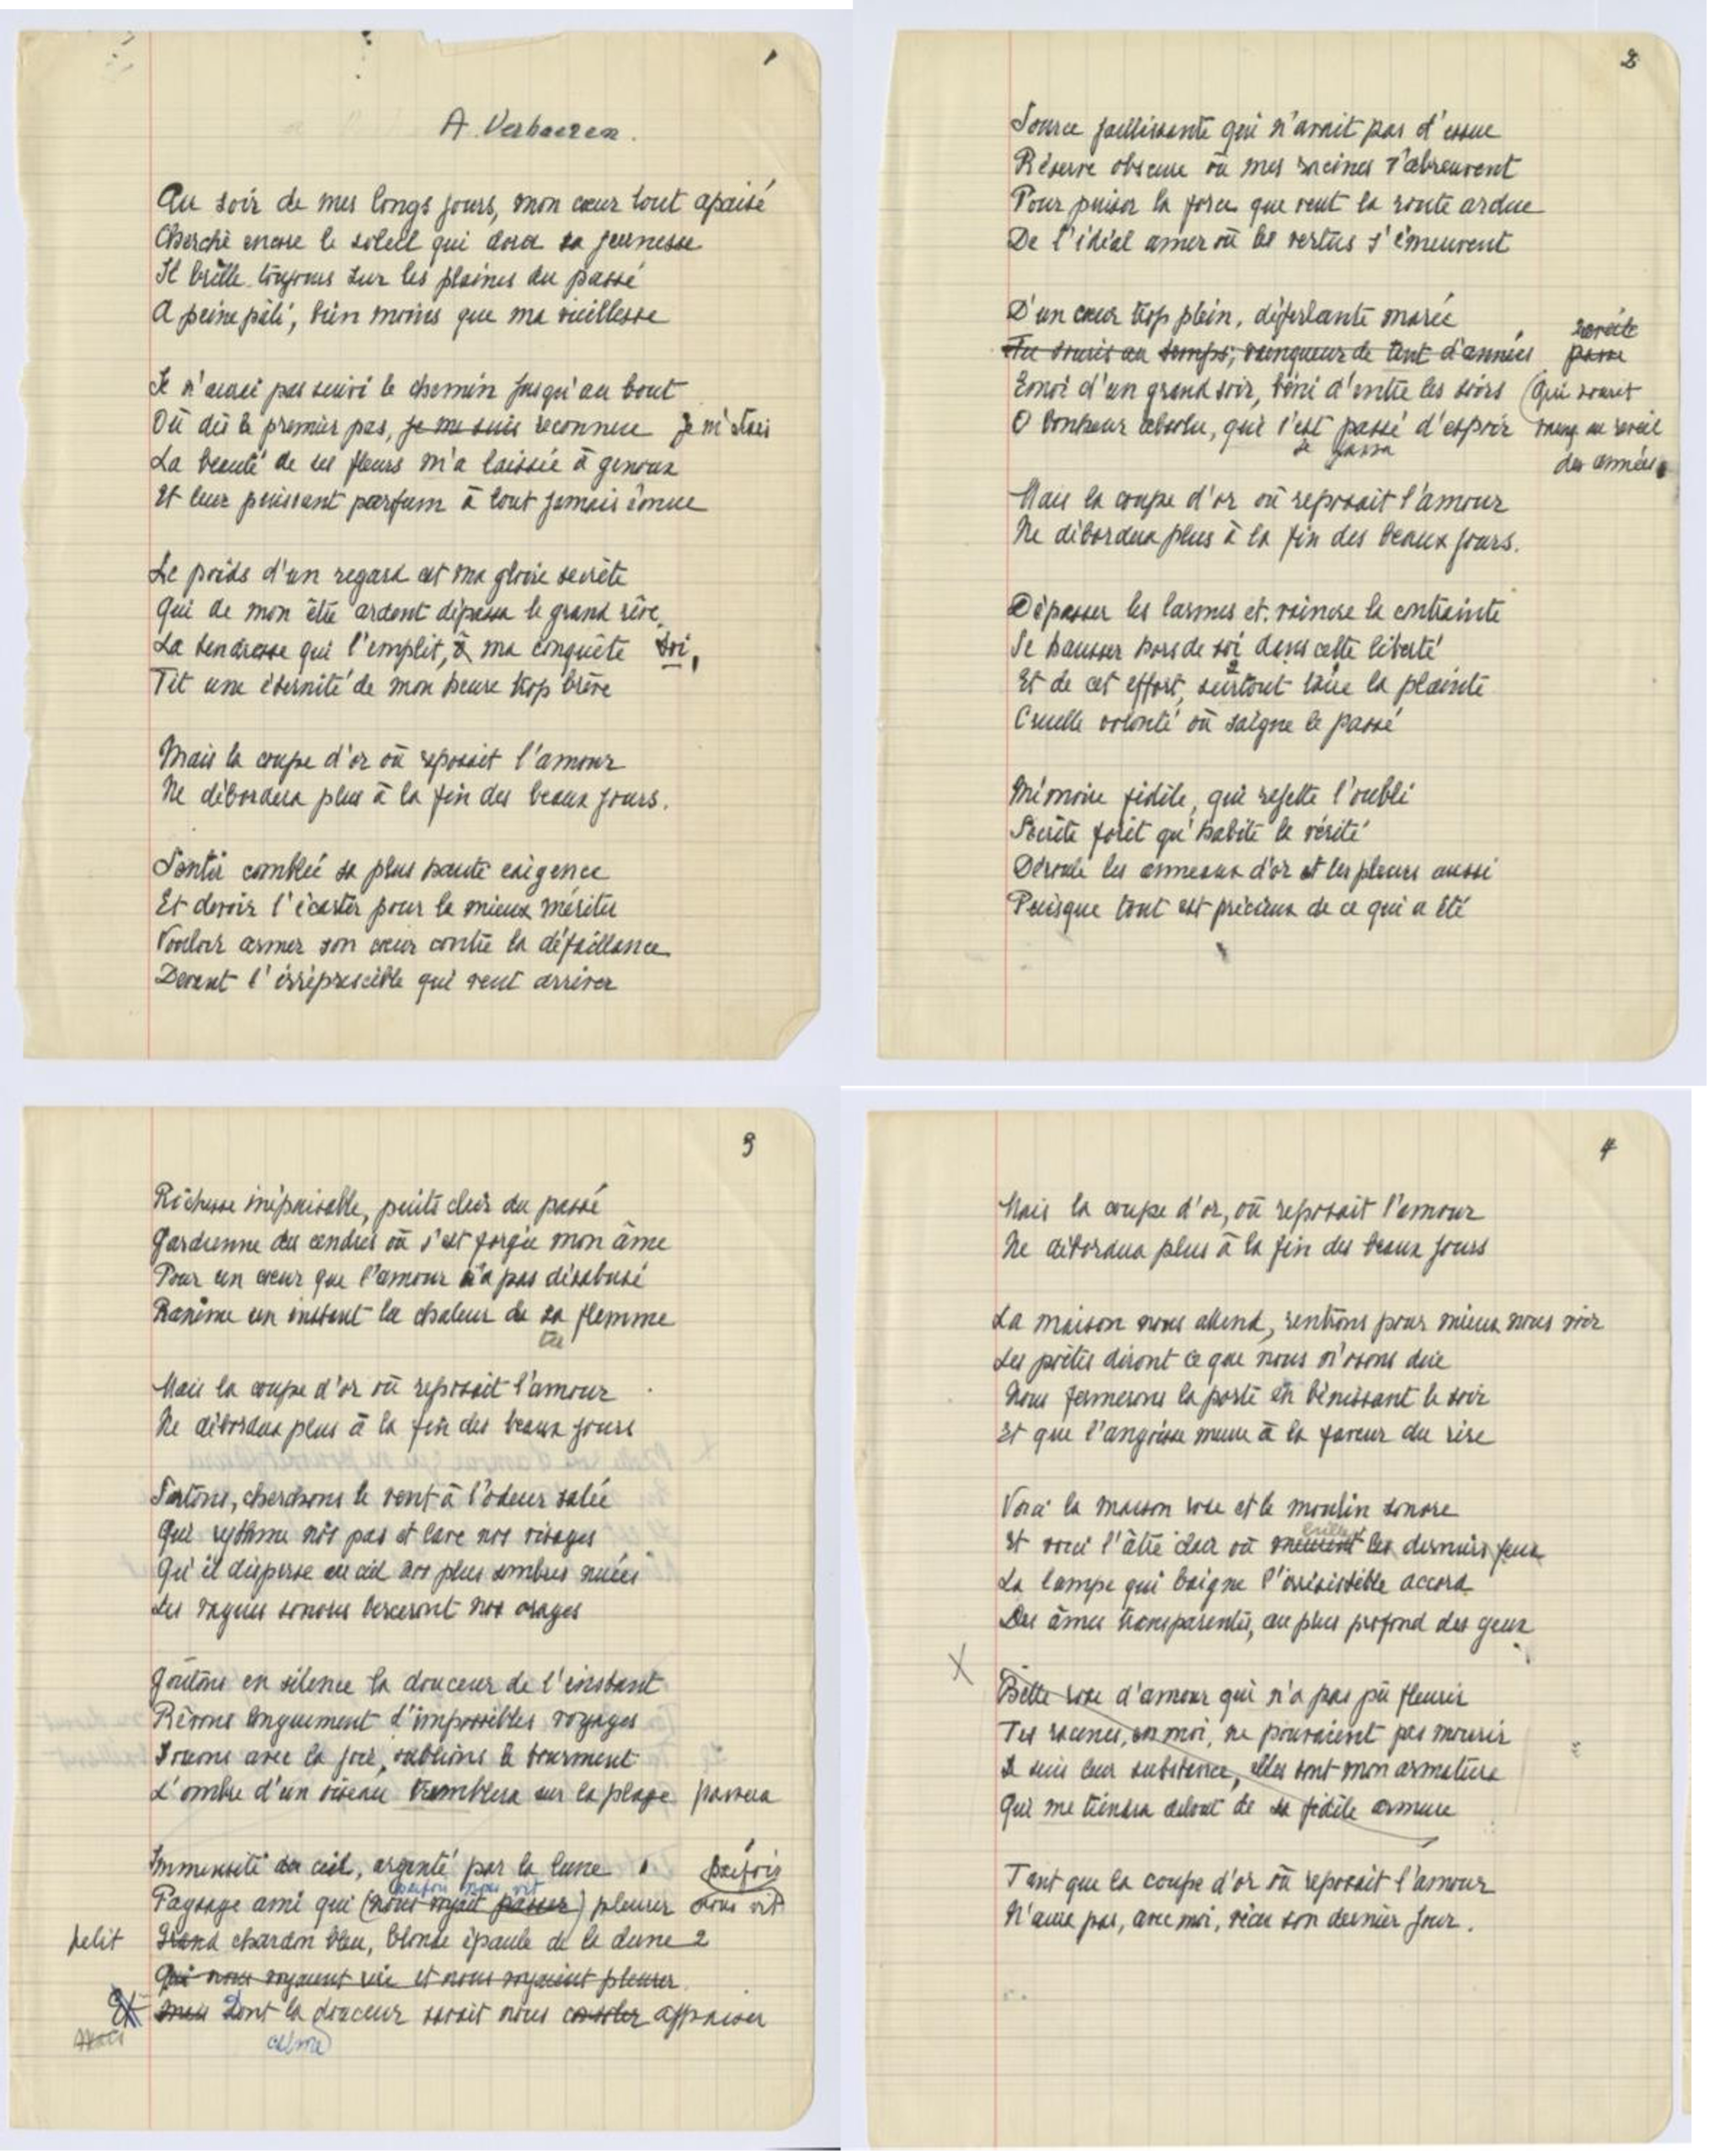 1
A Verhaeren.
Au soir de mes longs jours, mon cœur tout apaisé
Cherche encore le soleil qui dora sa jeunesse
Il brille toujours sur les plaines du passé
A peine pâli, bien moins que ma vieillesse
Je n'aurai pas suivi le chemin jusqu'au bout
Où dès le premier pas, je me suis reconnue je m'étais
La beauté de ses fleurs m'a laissée à genoux
Et leur puissant parfum à tout jamais émue
Le poids d'un regard est ma gloire secrète
Qui de mon être ardent dépassa le grand rêve
La tendresse qui l'emplit, à ma conquête toi,
Fit une éternité de mon heure trop brève
Mais la coupe d'or où reposait l'amour
Ne débordera plus à la fin des beaux jours.
Sentir comblée sa plus haute exigence
Et devoir l'écarter pour la mieux mériter
Vouloir armer son cœur contre la défaillance
Devant l'irrépressible qui veut arriver
2
Source jaillissante qui n'avait pas d'issue
Réserve obscure où mes racines s'abreuvent
Pour puiser la force que veut la route ardue
De l'idéal amer où les vertus s'émeuvent
D'un cœur trop plein, déferlante marée
Tu souris au temps; vainqueur de tant d'années passe
Emoi d'un grand soir, béni d'entre les soirs (Qui sourit
O bonheur absolu, qui s'est passé d'espoir au réveil
se passa des années
Mais la coupe d'or où reposait l'amour
Ne débordera plus à la fin des beaux jours.
Dépasser les larmes et vaincre la contrainte
Se hausser hors de soi dans cette liberté
Et de cet effort, surtout taire la plainte
Cruelle volonté où saigne le passé
Mémoire fidèle, qui rejette l'oubli
Secrète forêt qu'habite la vérité
Déroule les anneaux d'or et les pleurs aussi
Puisque tout est précieux de ce qui a été
3
Richesse inépuisable, puits clair du passé
Gardienne des cendres où s'est forgée mon âme
Pour un cœur que l'amour n'a pas désabusé
Ranime un instant la chaleur de sa flamme
ta
Mais la coupe d'or où reposait l'amour
Ne débordera plus à la fin des beaux jours
Sortons, cherchons le vent à l'odeur salée
Qui rythme nos pas et lave nos visages
Qu'il disperse au ciel nos plus sombres nuées
Les vagues sonores berceront nos orages
Goûtons en silence la douceur de l'instant
Rêvons longuement d'impossibles voyages
Jouons avec la joie, oublions le tourment
L'ombre d'un oiseau tremblera sur la plage passera
Immensité du ciel, argenté par la lune parfois
parfois nous vit
Paysage ami qui (nous voyait passer) pleurer nous vit
petit Grand chardon bleu, blonde épaule de la dune 2
Qui nous voyaient rire et nous voyaient pleurer
Et mais Dont la douceur savait nous consoler appaiser
calme
4
Mais la coupe d'or, où reposait l'amour
Ne débordera plus à la fin des beaux jours
La maison nous attend, rentrons pour mieux nous voir
Les poètes diront ce que nous n'osons dire
Nous fermerons la porte en bénissant le soir
Et que l'angoisse meure à la faveur du rire
Voici la maison rose et le moulin sonore
Et voici l'âtre clair où meurent les derniers feux
La lampe qui baigne l'irrésistible accord
Des âmes transparentes, au plus profond des yeux
X
Belle rose d'amour qui n'a pas pû fleurir
Tes racines, en moi, ne pouvaient pas mourir
Je suis leur substance, elles sont mon armature
Qui me tiendra debout de sa fidèle armure
Tant que la coupe d'or où reposait l'amour
N'aura pas, avec moi, vécu son dernier jour.